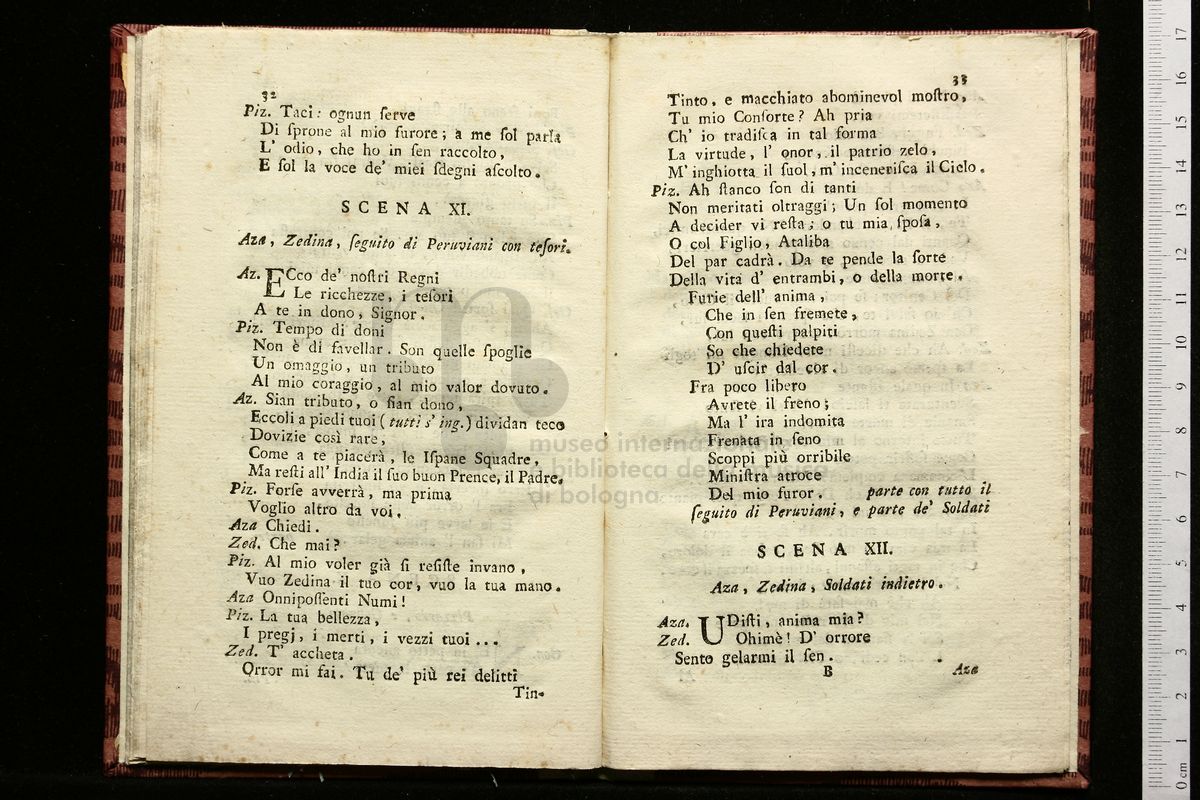 32
Piz. Taci: ognun ſerve
Di ſprone al mio furore; a me ſol parla
L' odio, che ho in ſen raccolto,
E ſol la voce de' miei ſdegni aſcolto.
SCENA XI.
Aza, Zedina, ſeguito di Peruviani con teſori.
Az. ECco de' noſtri Regni
Le ricchezze, i teſori
A te in dono, Signor.
Piz. Tempo di doni
Non è di favellar. Son quelle ſpoglie
Un omaggio, un tributo
Al mio coraggio, al mio valor dovuto.
Az. Sian tributo, o ſian dono,
Eccoli a piedi tuoi (tutti s' ing.) dividan teco
Dovizie così rare,
Come a te piacerà, le Iſpane Squadre,
Ma reſti all' India il ſuo buon Prence, il Padre.
Piz. Forſe avverrà, ma prima
Voglio altro da voi.
Aza Chiedi.
Zed. Che mai?
Piz. Al mio voler già ſi reſiſte invano,
Vuo Zedina il tuo cor, vuo la tua mano.
Aza Onnipoſſenti Numi!
Piz. La tua bellezza,
I pregj, i merti, i vezzi tuoi ...
Zed. T' accheta.
Orror mi fai. Tu de' più rei delitti
Tin-
33
Tinto, e macchiato abominevol moſtro,
Tu mio Conſorte? Ah pria
Ch' io tradiſca in tal forma
La virtude, l' onor, il patrio zelo,
M' inghiotta il ſuol, m' inceneriſca il Cielo.
Piz. Ah ſtanco ſon di tanti
Non meritati oltraggi; Un ſol momento
A decider vi reſta; o tu mia ſpoſa,
O col Figlio, Ataliba
Del par cadrà. Da te pende la ſorte
Della vita d' entrambi, o della morte.
Furie dell' anima,
Che in ſen fremete,
Con queſti palpiti
So che chiedete
D' uſcir dal cor.
Fra poco libero
Avrete il freno;
Ma l' ira indomita
Frenata in ſeno
Scoppi più orribile
Miniſtra atroce
Del mio furor. parte con tutto il
ſeguito di Peruviani, e parte de' Soldati
SCENA XII.
Aza, Zedina, Soldati indietro.
Aza. UDiſti, anima mia?
Zed. Ohimè! D' orrore
Sento gelarmi il ſen.
B Aza
museo internazionale
e biblioteca della musica
di bologna
17
16
15
14
13
12
11
10
9
8
7
6
5
4
3
2
1
0 cm